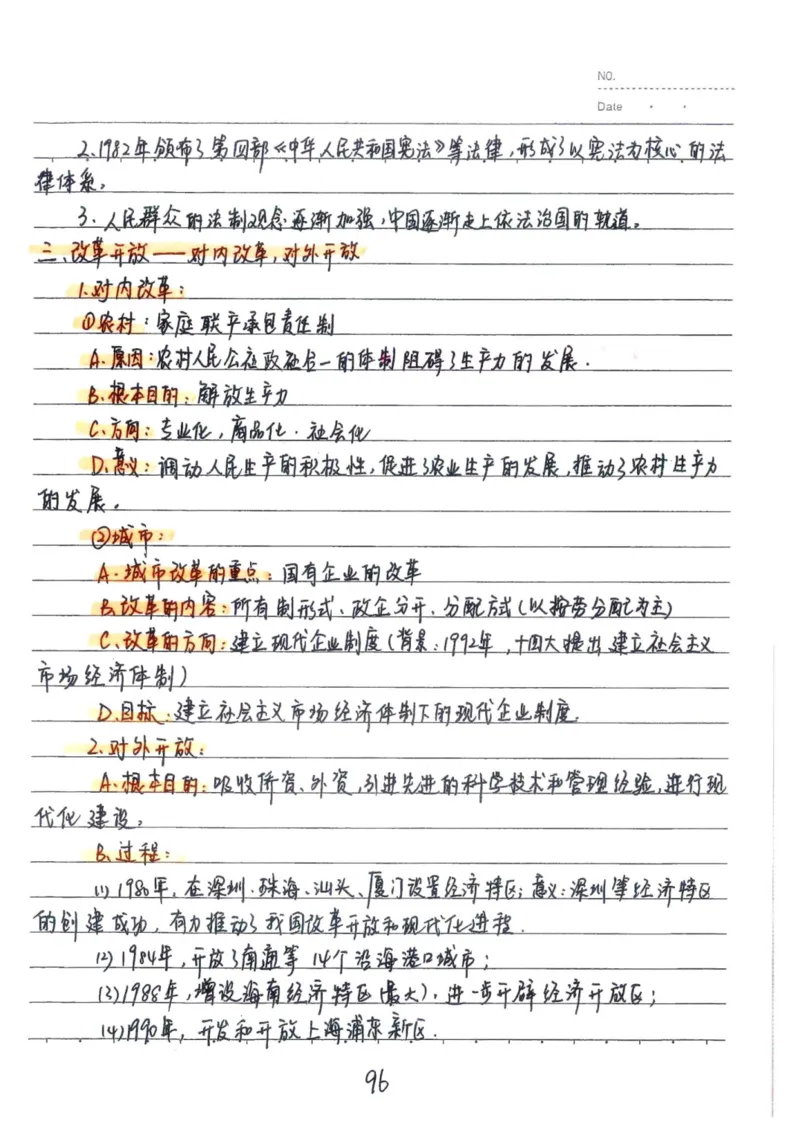 NO.
Date
2.1982年颁布了第四部《中华人民共和国宪法》等法律,形成了以宪法为核心的法
律体系。
3.人民群众的法制观念逐渐加强,中国逐渐走上依法治国的轨道。
三、改革开放——对内改革,对外开放
1.对内改革:
①农村:家庭联产承包责任制
A.原因:农村人民公社政社合一的体制阻碍了生产力的发展.
B.根本目的:解放生产力
C.方向:专业化,商品化.社会化
D.意义:调动人民生产的积极性,促进了农业生产的发展,推动了农村生产力
的发展。
②城市:
A.城市改革的重点:国有企业的改革
B.改革的内容:所有制形式、政企分开、分配方式(以按劳分配为主)
C.改革的方向:建立现代企业制度(背景:1992年,十四大提出建立社会主义
市场经济体制)
D.目标:建立社会主义市场经济体制下的现代企业制度.
2.对外开放:
A.根本目的:吸收侨资、外资,引进先进的科学技术和管理经验,进行现
代化建设。
B.过程:
(1)1980年,在深圳.珠海、汕头、厦门设置经济特区;意义:深圳等经济特区
的创建成功,有力推动了我国改革开放和现代化进程.
(2)1984年,开放了南通等14个沿海港口城市;
(3)1988年,增设海南经济特区(最大),进一步开辟经济开放区;
(4)1990年,开发和开放上海浦东新区.
96